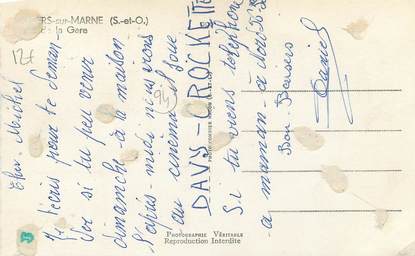 RS-sur-MARNE (S.-et-O.)
de la Gare
12f
94
Cher Michel
Je t'écris pour te deman-
der si tu peu venir
dimanche à la maison
l'après-midi nous irions
au cinéma il joue
DAVY-CROCKETT
Si tu viens téléphone
a maman-à
Bon-Baisers
Daniel
Photographie Véritable
Reproduction Interdite